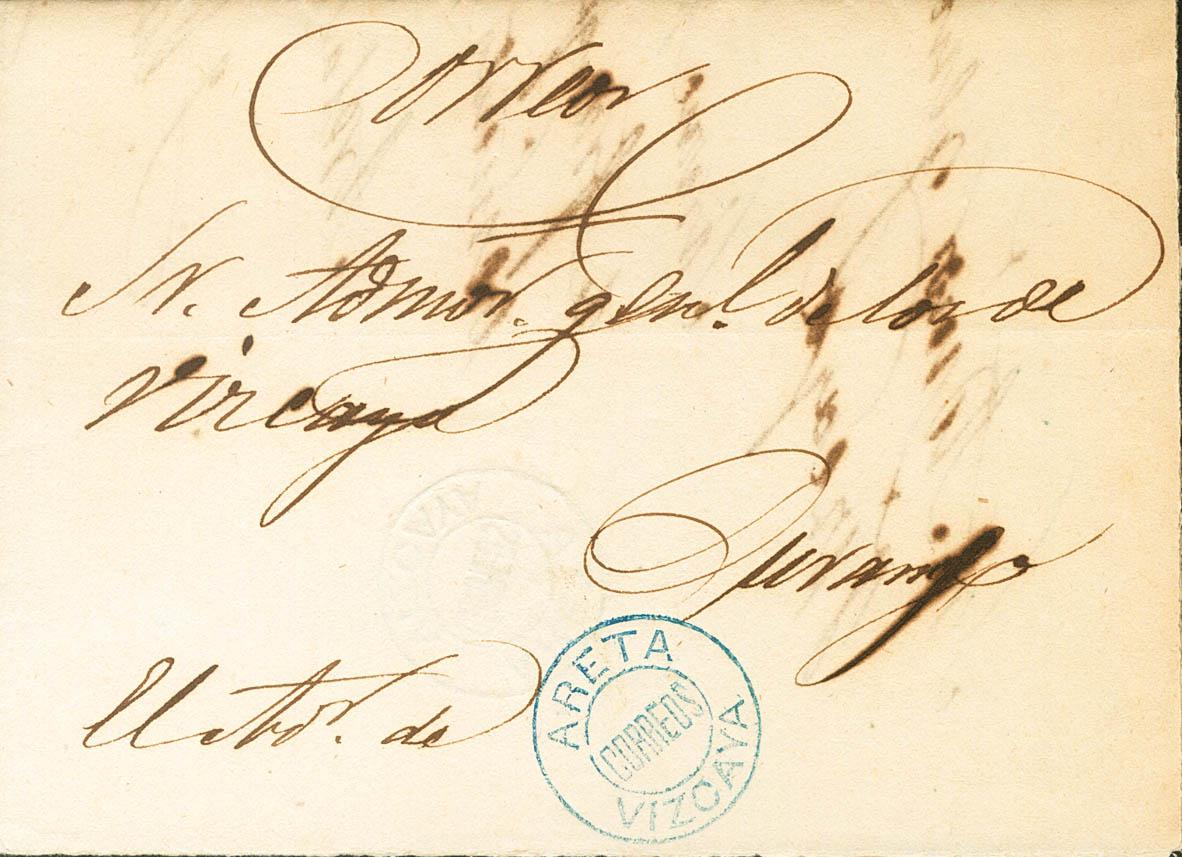 Correos
Sr. Admor. genl. de los de
Vizcaya
Durango
ElAdor. de
ARETA
CORREOS
VIZCAYA